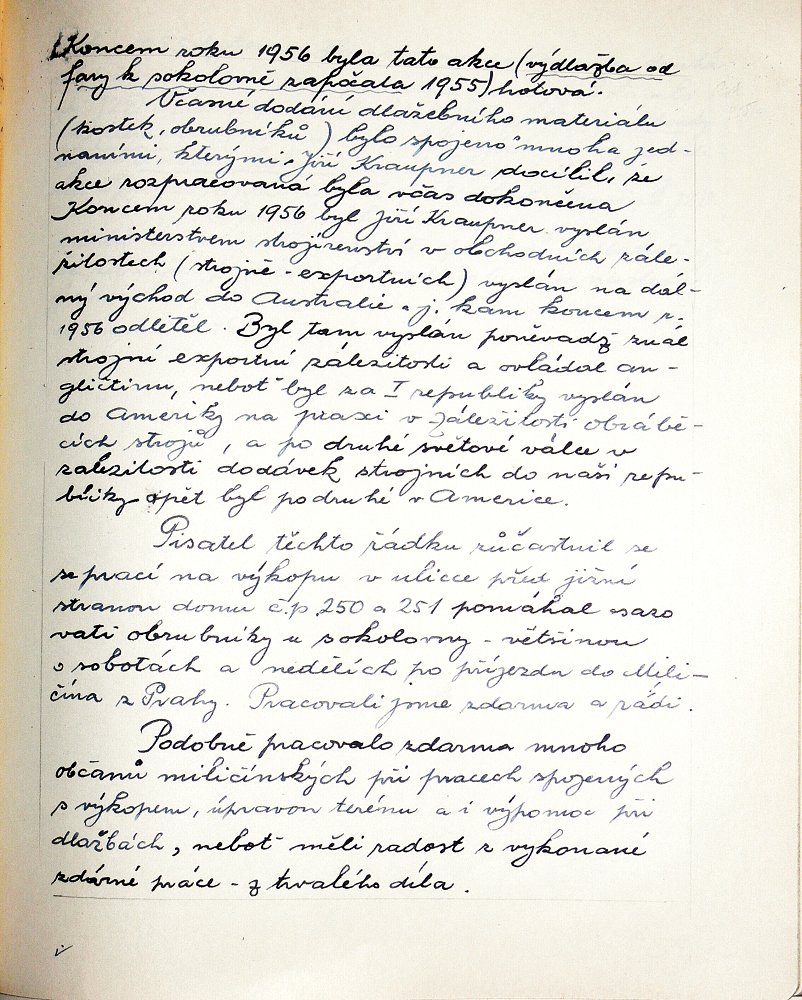 Koncem roku 1956 byla tato akce (výdlažba od
fary k sokolovně započala 1955) hotová.
Včasné dodání dlažebního materiálu
(kostek, obrubníků) bylo spojeno s mnoha jed-
náními, kterými Jiří Kraupner docílil, že
akce rozpracovaná byla včas dokončena
Koncem roku 1956 byl Jiří Kraupner vyslán
ministerstvem strojírenství v obchodních zále-
žitostech (strojně-exportních) vyslán na dál-
ný východ do Australie a j. kam koncem r.
1956 odletěl. Byl tam vyslán poněvadž znál
strojní exportní záležitosti a ovládal an-
gličtinu, neboť byl za I republiky vyslán
do Ameriky na praxi v záležitosti obrábě-
cích strojů, a po druhé světové válce v
záležitosti dodávek strojních do naší repu-
bliky opět byl podruhé v Americe.
Pisatel těchto řádků zůčastnil se
se prací na výkopu v ulicce před jižní
stranou domu č.p. 250 a 251 pomáhal osazo
vati obrubníky u sokolovny - většinou
o sobotách a nedělích po příjezdu do Mili-
čína z Prahy. Pracovali jsme zdarma a rádi.
Podobně pracovalo zdarma mnoho
občanů miličínských při pracech spojených
s výkopem, úpravou terénu a i výpomoc při
dlažbách, neboť měli radost z vykonané
zdárné práce - z trvalého díla.